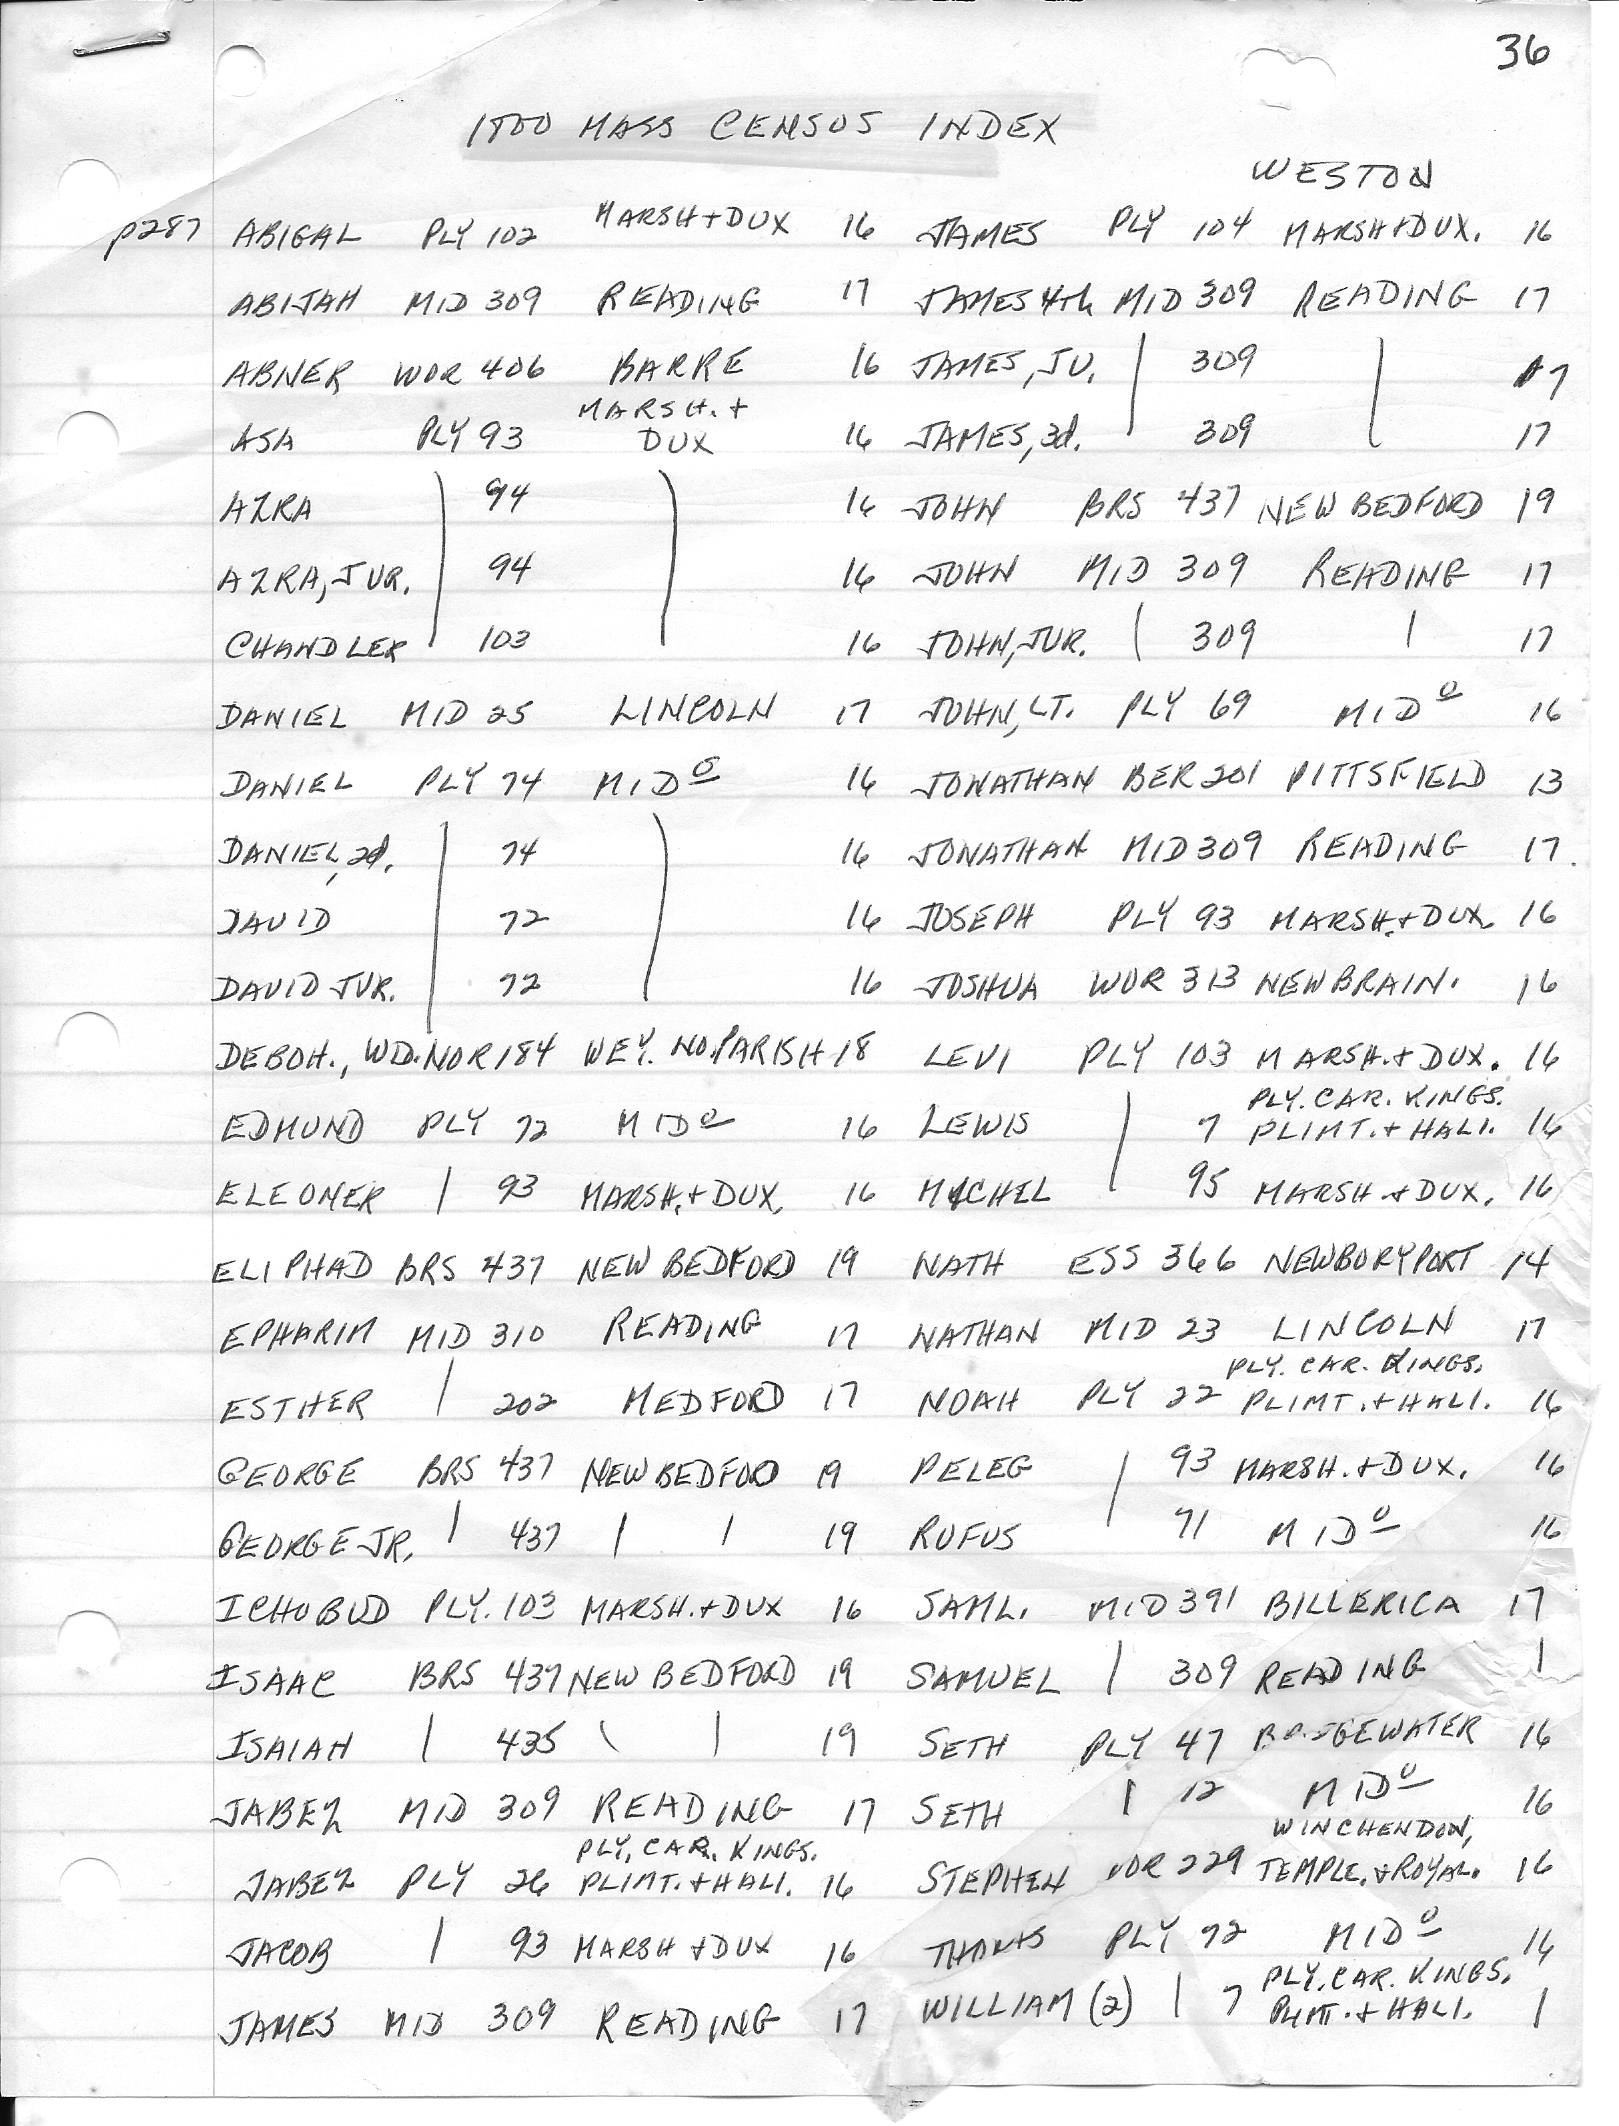 36
1800 MASS CENSUS INDEX
WESTON
p287 ABIGAL PLY 102 MARSH + DUX 16 JAMES PLY 104 MARSH + DUX. 16
ABIJAH MID 309 READING 17 JAMES 4th MID 309 READING 17
ABNER WOR 406 BARRE 16 JAMES, JU. | 309 | 17
MARSH. +
ASA PLY 93 DUX 16 JAMES, 3d. 309 17
AZRA | 94 | 16 JOHN BRS 437 NEW BEDFORD 19
AZRA, JUR. 94 16 JOHN MID 309 READING 17
CHANDLER 103 16 JOHN, JUR. | 309 | 17
DANIEL MID 25 LINCOLN 17 JOHN, LT. PLY 69 MIDo 16
DANIEL PLY 74 MIDo 16 JONATHAN BER 201 PITTSFIELD 13
DANIEL, 2d. | 74 | 16 JONATHAN MID 309 READING 17.
DAVID 72 16 JOSEPH PLY 93 MARSH. + DUX 16
DAVID JUR. 72 16 JOSHUA WOR 313 NEW BRAIN. 16
DEBOH., WD. NOR 184 WEY. NO. PARISH 18 LEVI PLY 103 MARSH. + DUX. 16
PLY. CAR. KINGS.
EDMUND PLY 72 MIDo 16 LEWIS | 7 PLIMT. + HALI. 16
ELEONER | 93 MARSH. + DUX. 16 MICHEL 95 MARSH + DUX. 16
ELIPHAD BRS 437 NEW BEDFORD 19 NATH ESS 366 NEWBORYPORT 14
EPHARIM MID 310 READING 17 NATHAN MID 23 LINCOLN 17
PLY. CAR. KINGS.
ESTHER | 202 MEDFORD 17 NOAH PLY 22 PLIMT. + HALI. 16
GEORGE BRS 437 NEW BEDFOD 19 PELEG | 93 MARSH. + DUX. 16
GEORGE JR. | 437 | | 19 RUFUS 71 MIDo 16
ICHOBUD PLY. 103 MARSH. + DUX 16 SAML. MID 391 BILLERICA 17
ISAAC BRS 437 NEW BEDFORD 19 SAMUEL | 309 READING |
ISAIAH | 435 \ | 19 SETH PLY 47 BRIDGEWATER 16
JABEZ MID 309 READING 17 SETH | 12 MIDo 16
PLY. CAR. KINGS. WINCHENDON,
JABEZ PLY 26 PLIMT. + HALI. 16 STEPHEN WOR 229 TEMPLE. + ROYAL. 16
JACOB | 93 MARSH + DUX 16 THOMAS PLY 72 MIDo 16
PLY. CAR. KINGS.
JAMES MID 309 READING 17 WILLIAM (2) | 7 PLIMT. + HALI. |